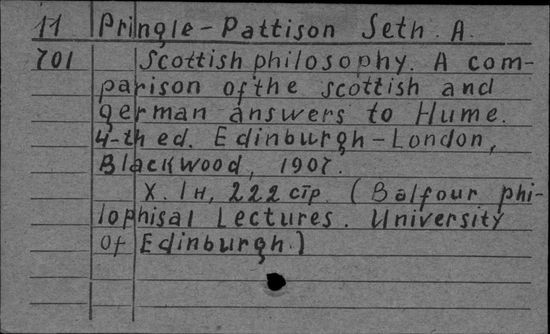 11 Pringle-Pattison Seth. A.
701 Scottish philosophy. A com-
parison of the scottish and
german answers to Hume.
4-th ed. Edinburgh-London,
Blackwood, 1907.
X. 1н, 222 стр. (Balfour phi-
lophisal Lectures. University
of Edinburgh.)